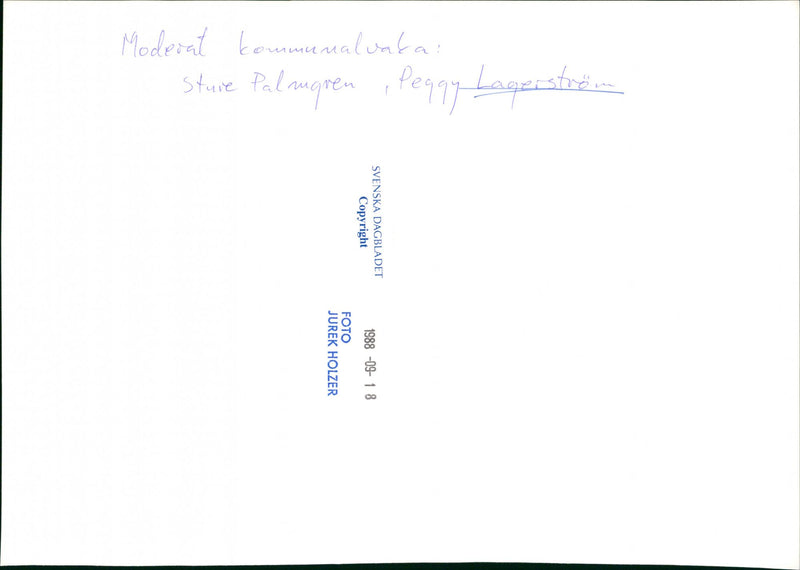 Moderat kommunalvaka:
Sture Palmgren, Peggy Lagerström
SVENSKA DAGBLADET
Copyright
1988 -09- 18
FOTO
JUREK HOLZER